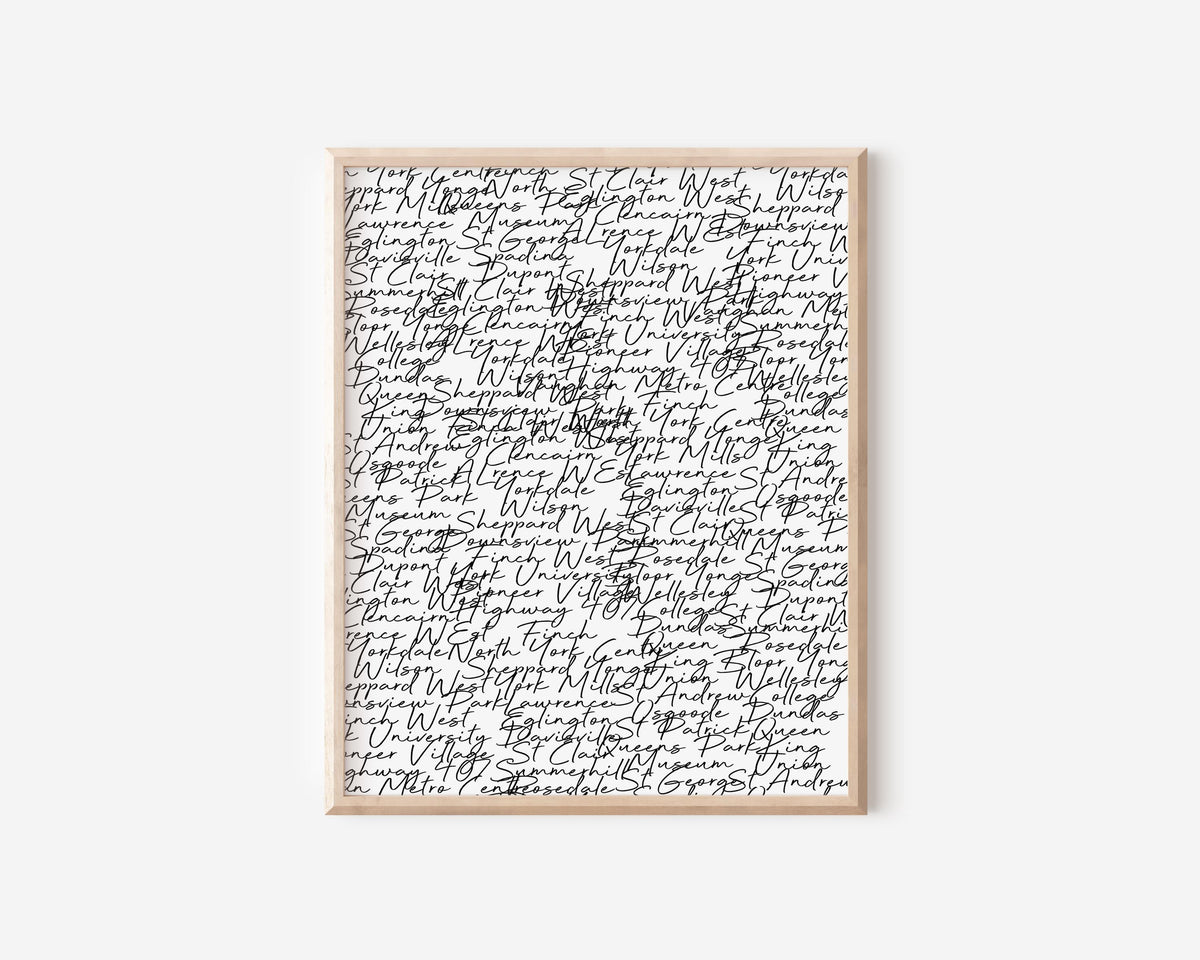 York Centre Finch St Clair West Yorkdale
Sheppard Yonge North Eglington West Wilson
York Mills Queens Park Glencairn Sheppard
Lawrence Museum A Lrence WEst Downsview
Eglington St George Yorkdale Finch W
Davisville Spadina Wilson York Univ
St Clair Dupont Sheppard West Pioneer V
Summerhill St Clair West Downsview Park Highway
Rosedale Eglington West Finch West Vaughan Met
Bloor Yonge Glencairn York University Summerh
Wellesley A Lrence WEst Pioneer Village Rosedale
College Yorkdale Highway 407 Bloor Yon
Dundas Wilson Vaughan Metro Centre Wellesley
Queen Sheppard West Finch College
King Downsview Park North York Centre Dundas
Union St Clair West Sheppard Yonge Queen
St Andrew Eglington West York Mills King
Osgoode Glencairn Lawrence Union
St Patrick A Lrence WEst Eglington St Andre
Queens Park Yorkdale Davisville Osgoode
Museum Wilson St Clair St Patri
St George Sheppard West Summerhill Queens P
Spadina Downsview Park Rosedale Museum
Dupont Finch West Bloor Yonge St Georg
Clair West York University Wellesley Spadina
ington West Pioneer Village College Dupont
Glencairn Highway 407 Dundas St Clair W
rence WEst Finch Queen Summerhi
Yorkdale North York Centre King Rosedale
Wilson Sheppard Yonge Union Bloor Yong
eppard West York Mills St Andrew Wellesley
nsview Park Lawrence Osgoode College
inch West Eglington St Patrick Dundas
k University Davisville Queens Park Queen
neer Village St Clair Museum King
ghway 407 Summerhill St George Union
n Metro Centre Rosedale St Andrew